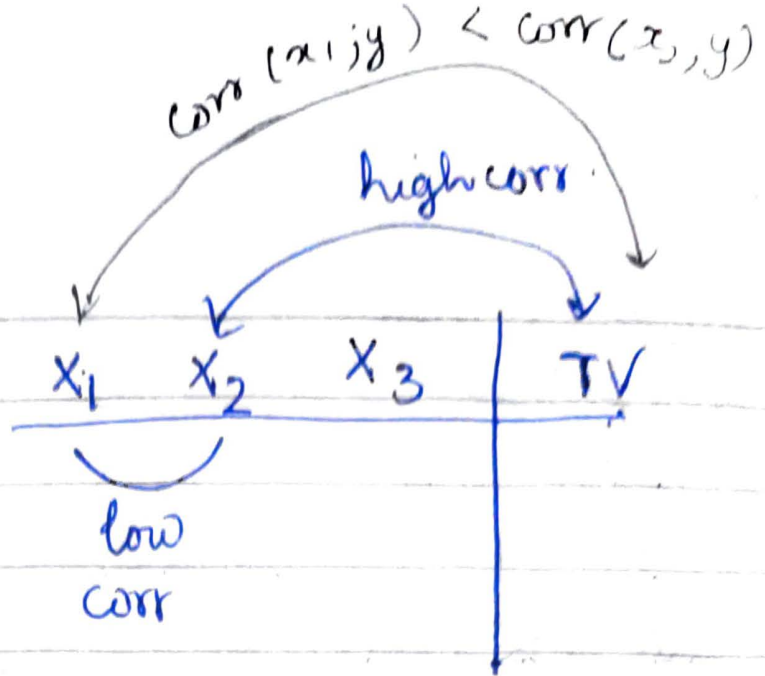 corr (x1;y) < corr(x2,y)
high corr.
X1 X2 X3 TV
low
corr